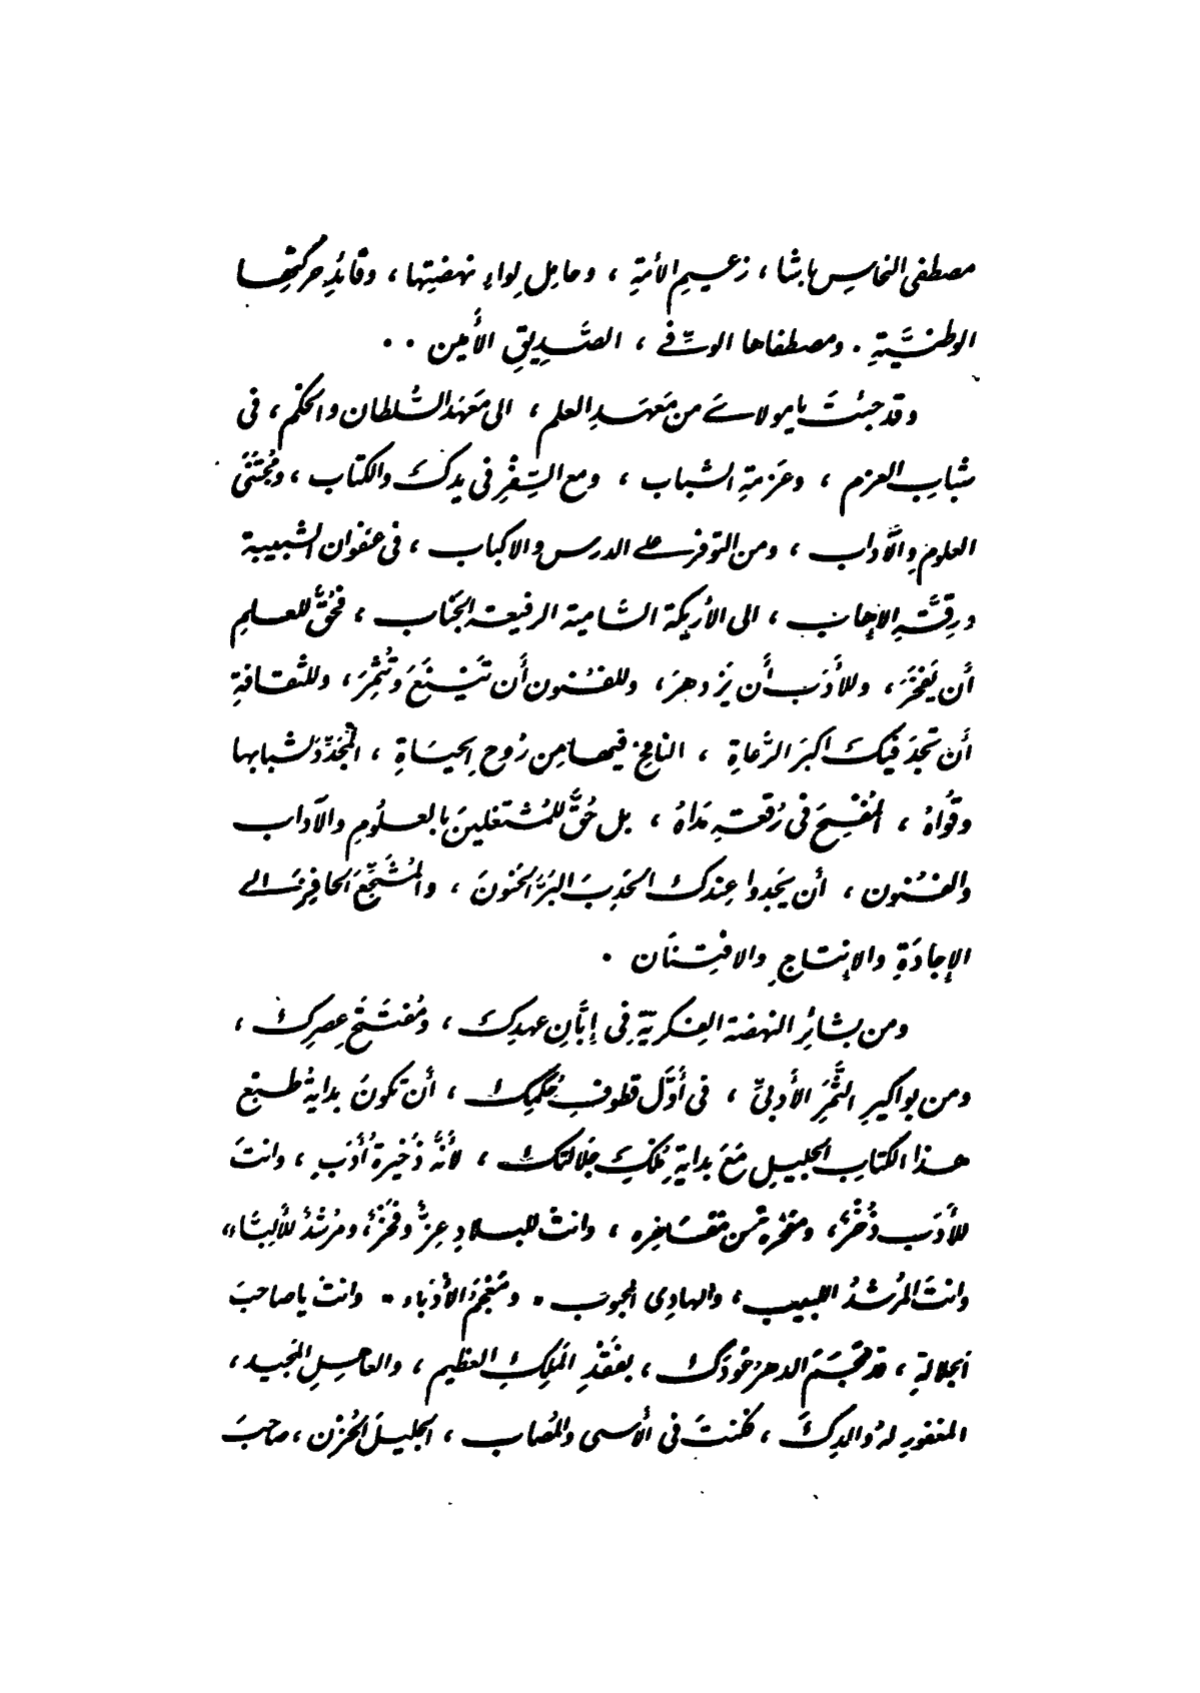 مصطفى النحاس باشا، زعيمِ الأمةِ، وحامِلِ لِواءِ نهضتِها، وقائدِ حركتِها
الوطنيَّةِ. ومصطفاها الوفىّ، الصَّدِيقِ الأَمين . .
وقد جئتَ يا مولاىَ من مَعهَدِ العلم، الى مَعهَد السُّلطان والحكم، فى
شبابِ العزم، وعَزمةِ الشباب، ومع السِّفْرِ فى يدك والكتاب، ومُجتَنَى
العلوم والآداب، ومن التوفر على الدرس والاكباب، فى عنفوان الشبيبة
ورِقَّةِ الإهاب، الى الأريكة السَّامية الرفيعة الجَنَاب، فحُقَّ للعلمِ
أن يَفخَرَ، وللأَدَب أَن يَزدهرَ، وللفنون أَن تَيْنَعَ وتُثمِرَ، وللثقافةِ
أن تجدَ فيك اكبرَ الرُّعاةِ، النافِخ فيها مِن رُوح الحيَاةِ، المجَدِّدَ لشبابها
وقُواهُ، المُفْسِحَ فى رُقعتِهِ مَدَاهُ، بل حُقَّ للمُشتغلينَ بالعلُومِ والآداب
والفنُون، أن يَجدوا عِندك الحَدِبَ البَرَّ الحَنونَ، والمُشَجِّعَ الحافِزَ الى
الإجادَةِ والإنتاجِ والافتِنَان .
ومن بشائِرِ النهضة الفِكريّة فِى إبَّانِ عهدِك، ومُفتَتَح عصرِك،
ومن بواكيرِ الثَّمَرِ الأَدبىِّ، فى أوَّل قطوفِ حُكمِك، أن تكونَ بدايةُ طبع
هذا الكتابِ الجليلِ مَعَ بدايةِ مُلكِ جَلالتك، لأنَّهُ ذَخيرةُ أدَبٍ، وانتَ
للأدَب ذُخْرٌ، ومَفخرة من مفَاخِره، وانت للبلادِ عِزٌّ وفَخْرٌ، ومرشدٌ للألِبَّاء،
وانتَ المُرشدُ اللبيب، والهادِى المحبوب . ومُعْجَمُ الأُدَباء . وانتَ يا صاحبَ
الجلالةِ، قد عَجَمَ الدهرُ عُودَك، بفَقْدِ المَلِكِ العظيم، والعاهِلِ المجيد،
المغفورِ لهُ والدِكَ، فكنتَ فى الأسى والمُصاب، الجليلَ الحُزْن، صاحبَ